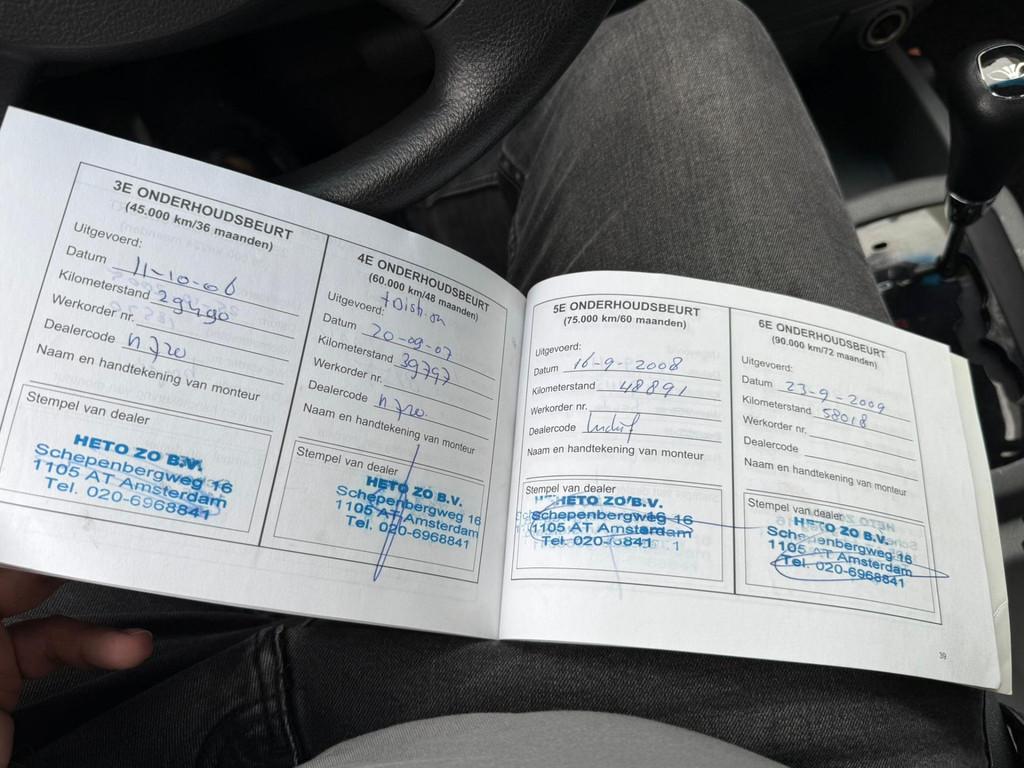 3E ONDERHOUDSBEURT
(45.000 km/36 maanden)
Uitgevoerd:
Datum 11-10-06
Kilometerstand 29490
Werkorder nr.
Dealercode n720
Naam en handtekening van monteur
Stempel van dealer
HETO ZO B.V.
Schepenbergweg 16
1105 AT Amsterdam
Tel. 020-6968841
4E ONDERHOUDSBEURT
(60.000 km/48 maanden)
Uitgevoerd:
Datum 20-09-07
Kilometerstand 39797
Werkorder nr.
Dealercode n720
Naam en handtekening van monteur
Stempel van dealer
HETO ZO B.V.
Schepenbergweg 16
1105 AT Amsterdam
Tel. 020-6968841
5E ONDERHOUDSBEURT
(75.000 km/60 maanden)
Uitgevoerd:
Datum 16-9-2008
Kilometerstand 48891
Werkorder nr.
Dealercode
Naam en handtekening van monteur
Stempel van dealer
HETO ZO B.V.
Schepenbergweg 16
1105 AT Amsterdam
Tel. 020-
6E ONDERHOUDSBEURT
(90.000 km/72 maanden)
Uitgevoerd:
Datum 23-9-2009
Kilometerstand 58018
Werkorder nr.
Dealercode
Naam en handtekening van monteur
Stempel van dealer
HETO ZO B.V.
Schepenbergweg 16
1105 AT Amsterdam
Tel. 020-6968841
39